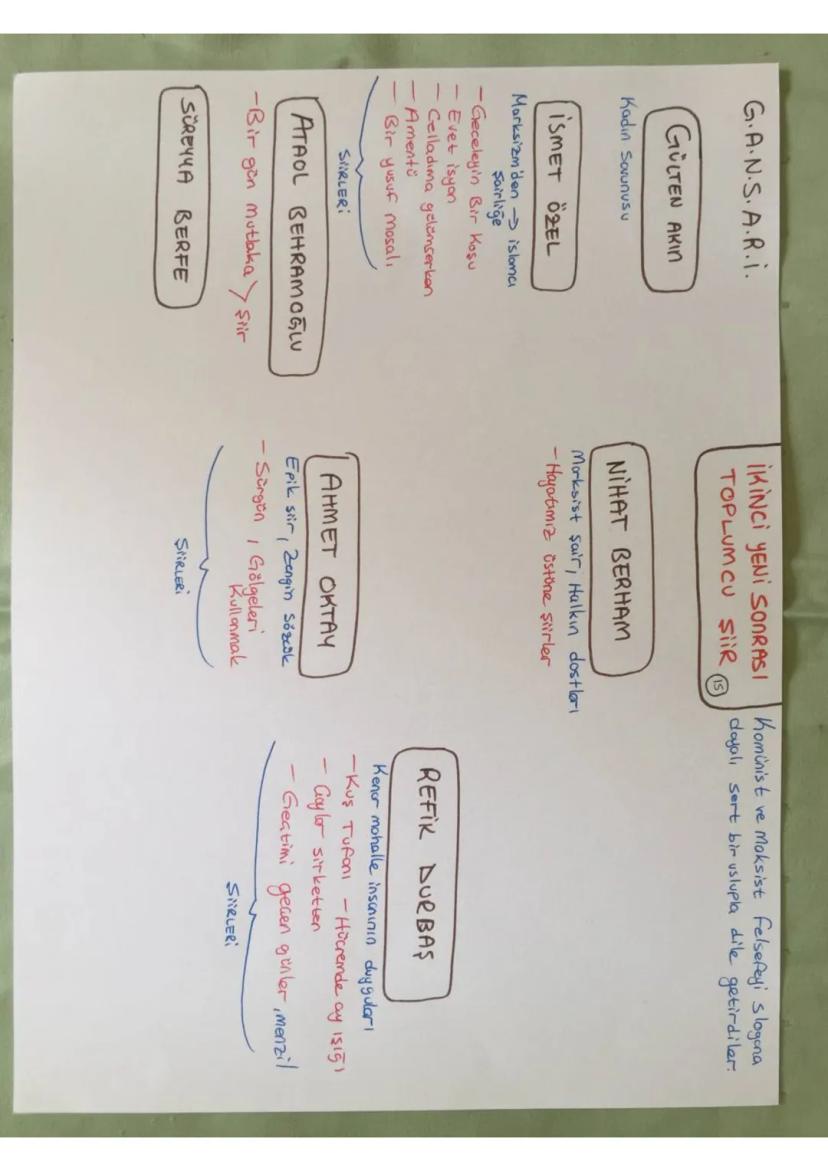 G.A.N.S.A.R.İ.
İKİNCİ YENİ SONRASI
TOPLUMCU ŞİİR 15
Komünist ve Moksist felsefeyi slogana
dayalı sert bir uslupla dile getirdiler.
GÜLTEN AKIN
Kadın Savunusu
İSMET ÖZEL
Marksizm'den → islamcı
şairliğe
- Geceleyin Bir Koşu
- Evet isyan
- Celladıma gülümserken
- Amentü
- Bir yusuf masalı
ŞİİRLERİ
ATAOL BEHRAMOĞLU
- Bir gün mutlaka > Şiir
SÜREYYA BERFE
NİHAT BERHAM
Marksist şair, Halkın dostları
- Hayatımız üstüne şiirler
AHMET OKTAY
Epik şiir, Zengin sözcük
- Sürgün, Gölgeleri
Kullanmak
ŞİİRLERİ
REFİK DURBAŞ
Kenar mahalle insanının duyguları
- Kuş Tufanı - Hücremde ay ışığı
- Çaylar şirketten
- Geçtimi geçen günler, menzil
ŞİİRLERİ